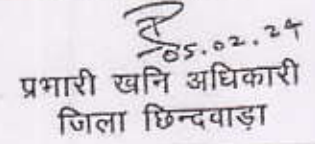 05.02.24
प्रभारी खनि अधिकारी
जिला छिन्दवाड़ा